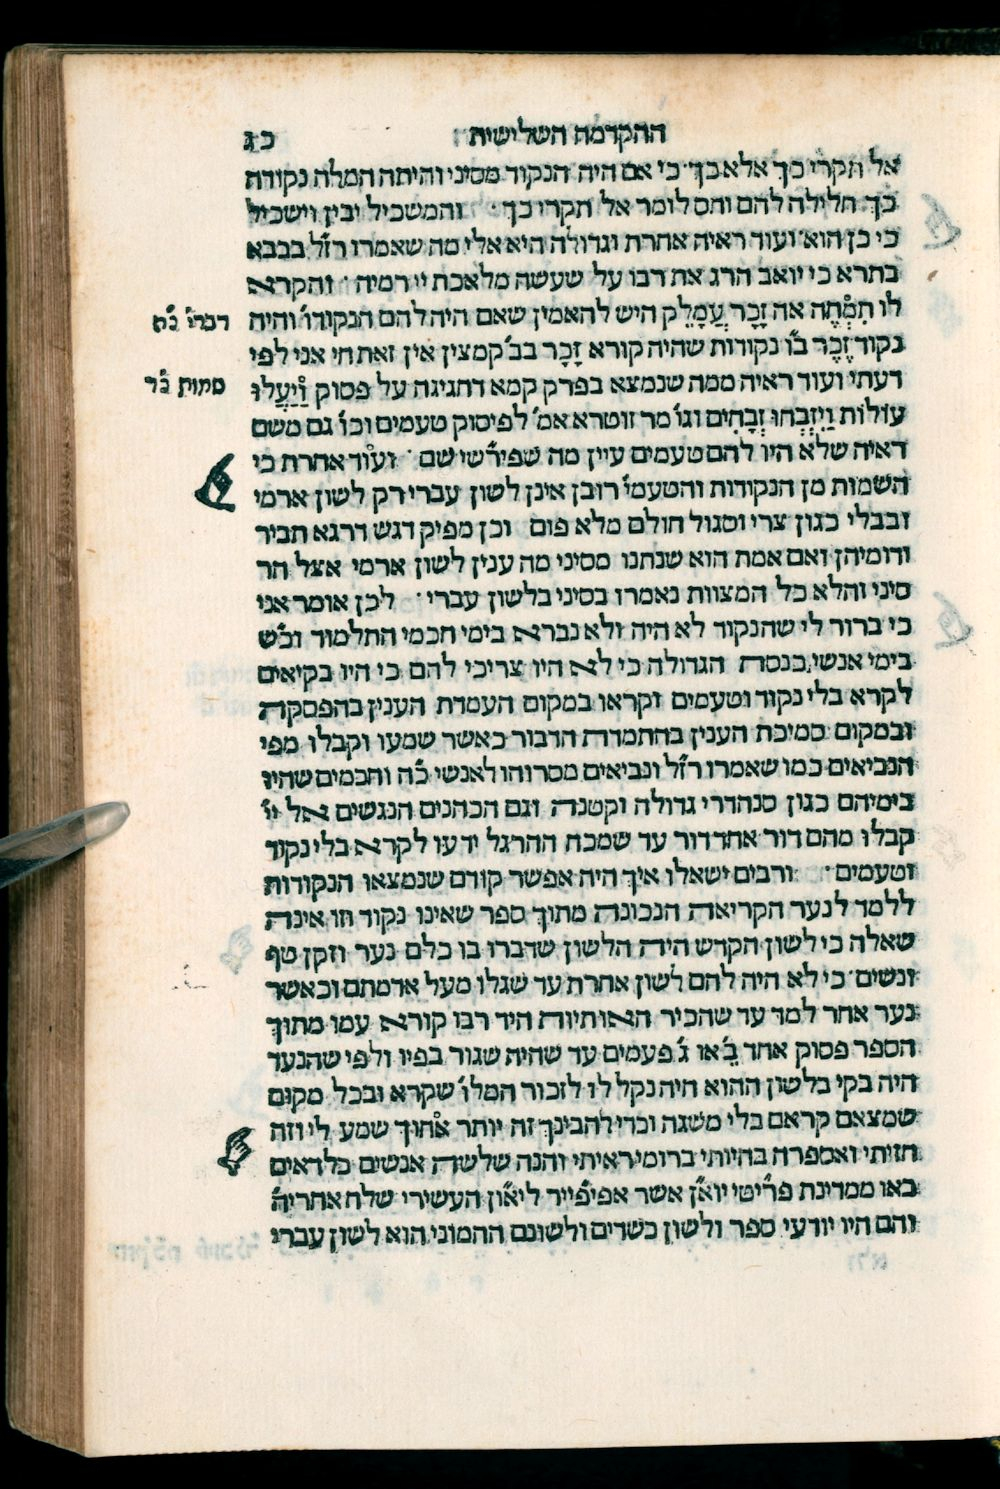 ההקדמה השלישית כג
אל תקרי כך אלא כך כי אם היה הנקוד מסיני והיתה המלה נקודה
כך חלילה להם וחס לומר אל תקרי כך · והמשכיל יבין וישכיל
כי כן הוא ועוד ראיה אחרת וגדולה היא אלי מה שאמרו רז״ל בבבא
בתרא כי יואב הרג את רבו על שעשה מלאכת יי רמיה · והקרא
לו תִמְחֶה אה זָכָר עֲמָלֵק היש להאמין שאם היה להם הנקודו׳ והיה
דברי׳ כ״ה
נקוד זֶכֶר ב״ו נקודות שהיה קורא זָכָר בב׳ קמצין אין זאת חי אני לפי
דעתי ועוד ראיה ממה שנמצא בפרק קמא דחגיגה על פסוק וַיַּעֲלוּ
שמות כ״ד
עולות וַיִזְבְּחוּ זְבָחִים וגו׳ מר זוטרא אמ׳ לפיסוק טעמים וכו׳ גם משם
ראיה שלא היו להם טעמים עיין מה שפירש״י שם · ועוד אחרת כי
השמות מן הנקודות והטעמי׳ רובן אינן לשון עברי רק לשון ארמי
ובבלי כגון צרי וסגול חולם מלא פום וכן מפיק דגש דרגא תביר
ודומיהן ואם אמת הוא שנתנו מסיני מה ענין לשון ארמי אצל הר
סיני והלא כל המצוות נאמרו בסיני בלשון עברי · לכן אומר אני
כי ברור לי שהנקוד לא היה ולא נברא בימי חכמי התלמוד וכ״ש
בימי אנשי כנסת הגדולה כי לא היו צריכי להם כי היו בקיאים
לקרא בלי נקוד וטעמים וקראו במקום העמדת הענין בהפסקה
ובמקום סמיכת הענין בהתמדת הדבור כאשר שמעו וקבלו מפי
הנביאים כמו שאמרו רז״ל ונביאים מסרוהו לאנשי כ״ה וחכמים שהיו
בימיהם כגון סנהדרי גדולה וקטנה וגם הכהנים הנגשים אל יי׳
קבלו מהם דור אחר דור עד שמכח ההרגל ידעו לקרא בלי נקוד
וטעמים · ורבים ישאלו איך היה אפשר קודם שנמצאו הנקודות
ללמד לנער הקריאה הנכונה מתוך ספר שאינו נקוד וזו אינה
שאלה כי לשון הקדש היה הלשון שדברו בו כלם נער וזקן טף
ונשים · כי לא היה להם לשון אחרת עד שגלו מעל אדמתם וכאשר
נער אחד למד עד שהכיר האותיות היה רבו קורא עמו מתוך
הספר פסוק אחד ב׳ או ג׳ פעמים עד שהיה שגור בפיו ולפי שהנער
היה בקי בלשון ההוא היה נקל לו לזכור המלו׳ שקרא ובכל מקום
שמצאם קראם בלי משגה וכדי להבינך זה יותר אחוך שמע לי וזה
חזיתי ואספרה בהיותי ברומי ראיתי והנה שלשה אנשים כלדאים
באו ממדינת פרי״טי יוא״ן אשר אפיפ״ייר ליא״ון העשירי שלח אחריה׳
והם היו יודעי ספר ולשון כשדים ולשונם ההמוני הוא לשון עברי
ולא